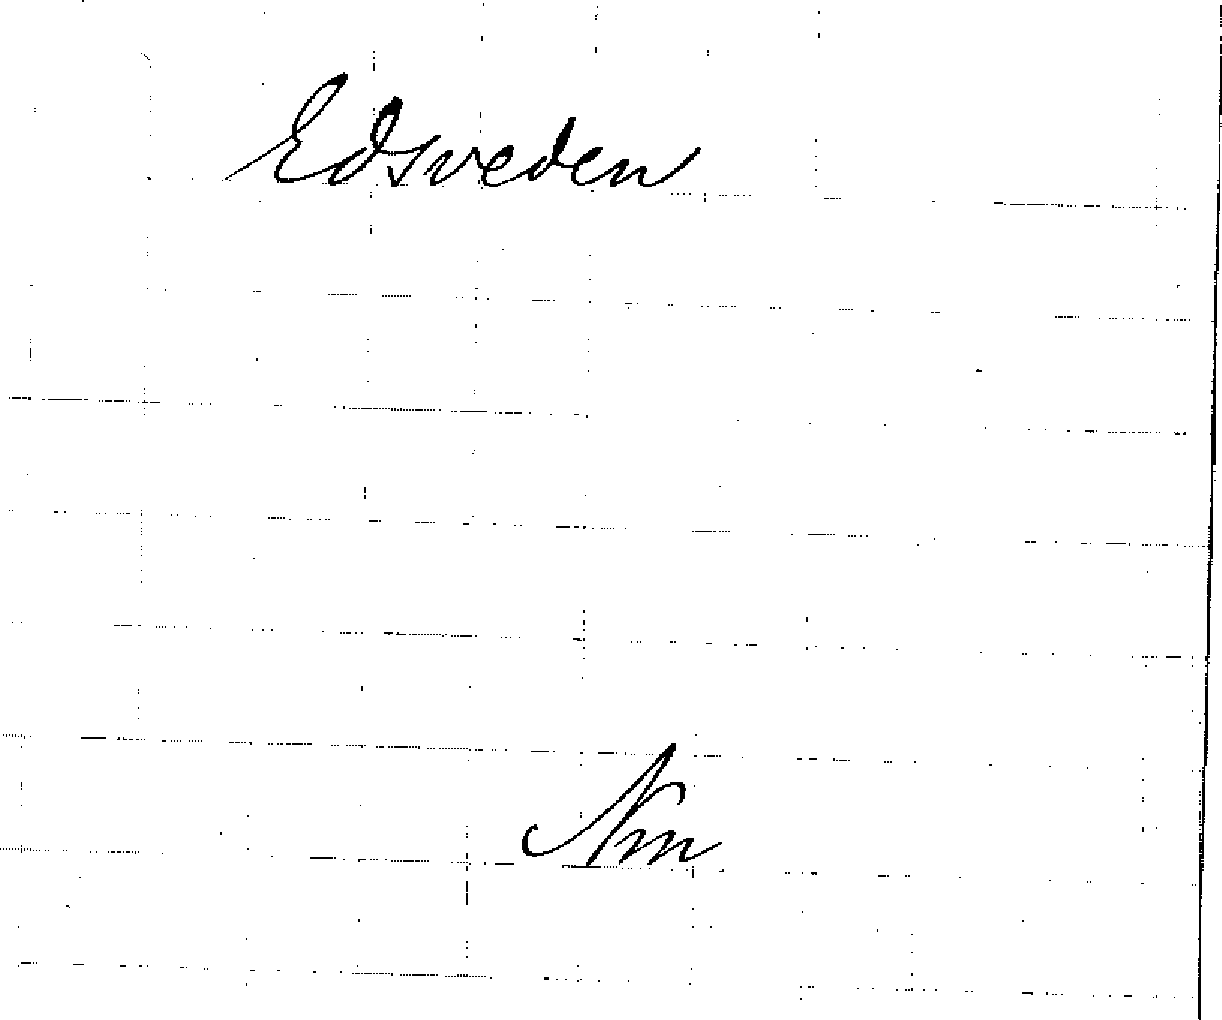 Edsveden
Nm